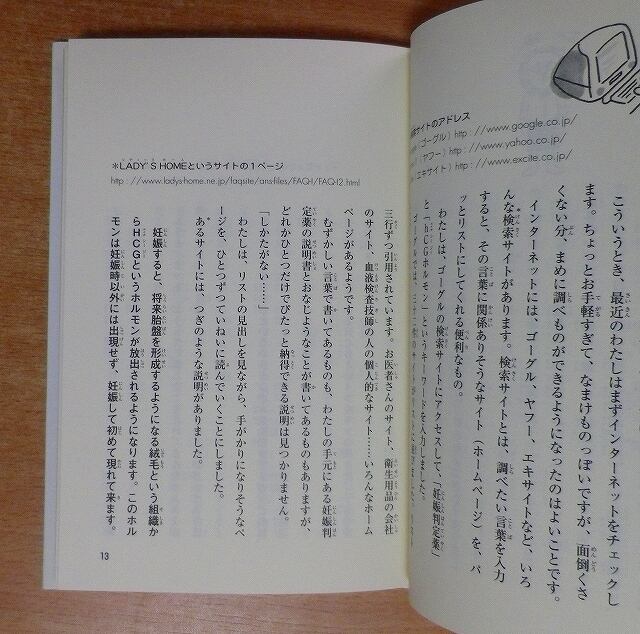 サイトのアドレス
（ゴーグル）http://www.google.co.jp/
（ヤフー）http://www.yahoo.co.jp/
エキサイト）http://www.excite.co.jp/
こういうとき、最近のわたしはまずインターネットをチェックし
ます。ちょっとお手軽すぎて、なまけものっぽいですが、面倒くさ
くない分、まめに調べものができるようになったのはよいことです。
インターネットには、ゴーグル、ヤフー、エキサイトなど、いろ
んな検索サイトがあります。検索サイトとは、調べたい言葉を入力
すると、その言葉に関係ありそうなサイト（ホームページ）を、パ
ッとリストにしてくれる便利なもの。
わたしは、ゴーグルの検索サイトにアクセスして、「妊娠判定薬」
と「hCGホルモン」というキーワードを入力しました。
ゴーグルでは、
＊LADY'S HOMEというサイトの1ページ
http://www.ladys-home.ne.jp/faqsite/ans-files/FAQ-1/FAQ-12.html
三行ずつ引用されています。お医者さんのサイト、衛生用品の会社
のサイト、血液検査技師の人の個人的なサイト……いろんなホーム
ページがあるようです。
むずかしい言葉で書いてあるものも、わたしの手元にある妊娠判
定薬の説明書とおなじようなことが書いてあるものもありますが、
どれかひとつだけでぴたっと納得できる説明は見つかりません。
「しかたがない……」
わたしは、リストの見出しを見ながら、手がかりになりそうなペ
ージを、ひとつずつていねいに読んでいくことにしました。
あるサイトには、つぎのような説明がありました。
妊娠すると、将来胎盤を形成するようになる絨毛という組織か
らHCGというホルモンが放出されるようになります。このホル
モンは妊娠時以外には出現せず、妊娠して初めて現れて来ます。
13